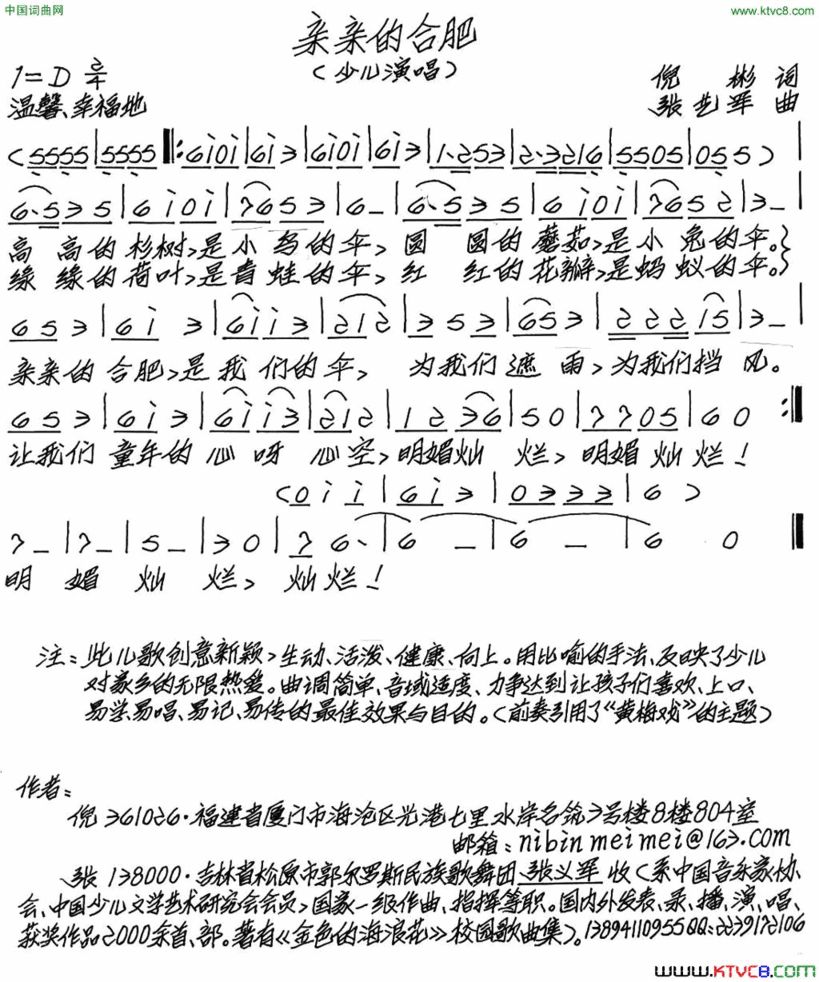 中国词曲网
www.ktvc8.com
亲亲的合肥
(少儿演唱)
1=D 2/4
倪 彬 词
温馨、幸福地
张艺军 曲
(5555|5555‖:6i0i|6i3|6i0i|6i3|1·253|2·3216|5505|055)|
6·535|6i0i|7653|6-|6·535|6i0i|7652|3-|
高 高的杉树,是小鸟的伞,圆 圆的蘑茹,是小兔的伞。
缘 缘的荷叶,是青蛙的伞,红 红的花瓣,是蚂蚁的伞。
653|6i 3|6ii3|2i2|353|653|22215|3-|
亲亲的合肥,是我们的伞, 为我们遮雨,为我们挡风。
653|6i3|6ii3|2i2|1236|50|7705|60:‖
让我们童年的心呀心空,明媚灿 烂,明媚灿烂!
(0ii|6i3|0333|6)
7-|7-|5-|30|76·|6-|6-|6 0‖
明 媚 灿 烂,灿烂!
注:此儿歌创意新颖,生动、活泼、健康、向上。用比喻的手法、反映了少儿
对家乡的无限热爱。曲调简单、音域适度、力争达到让孩子们喜欢、上口、
易学、易唱、易记、易传的最佳效果与目的。(前奏引用了“黄梅戏”的主题)
作者:
倪361026·福建省厦门市海沧区光港七里水岸名筑3号楼8楼804室
邮箱:nibinmeimei@163.com
张138000·吉林省松原市郭尔罗斯民族歌舞团 张义军 收(系中国音乐家协
会、中国少儿文学艺术研究会会员,国家一级作曲、指挥等职。国内外发表、录、播、演、唱、
获奖作品2000余首、部。著有《金色的海浪花》校园歌曲集)。13894110955QQ:2239172106
www.KTVC8.com